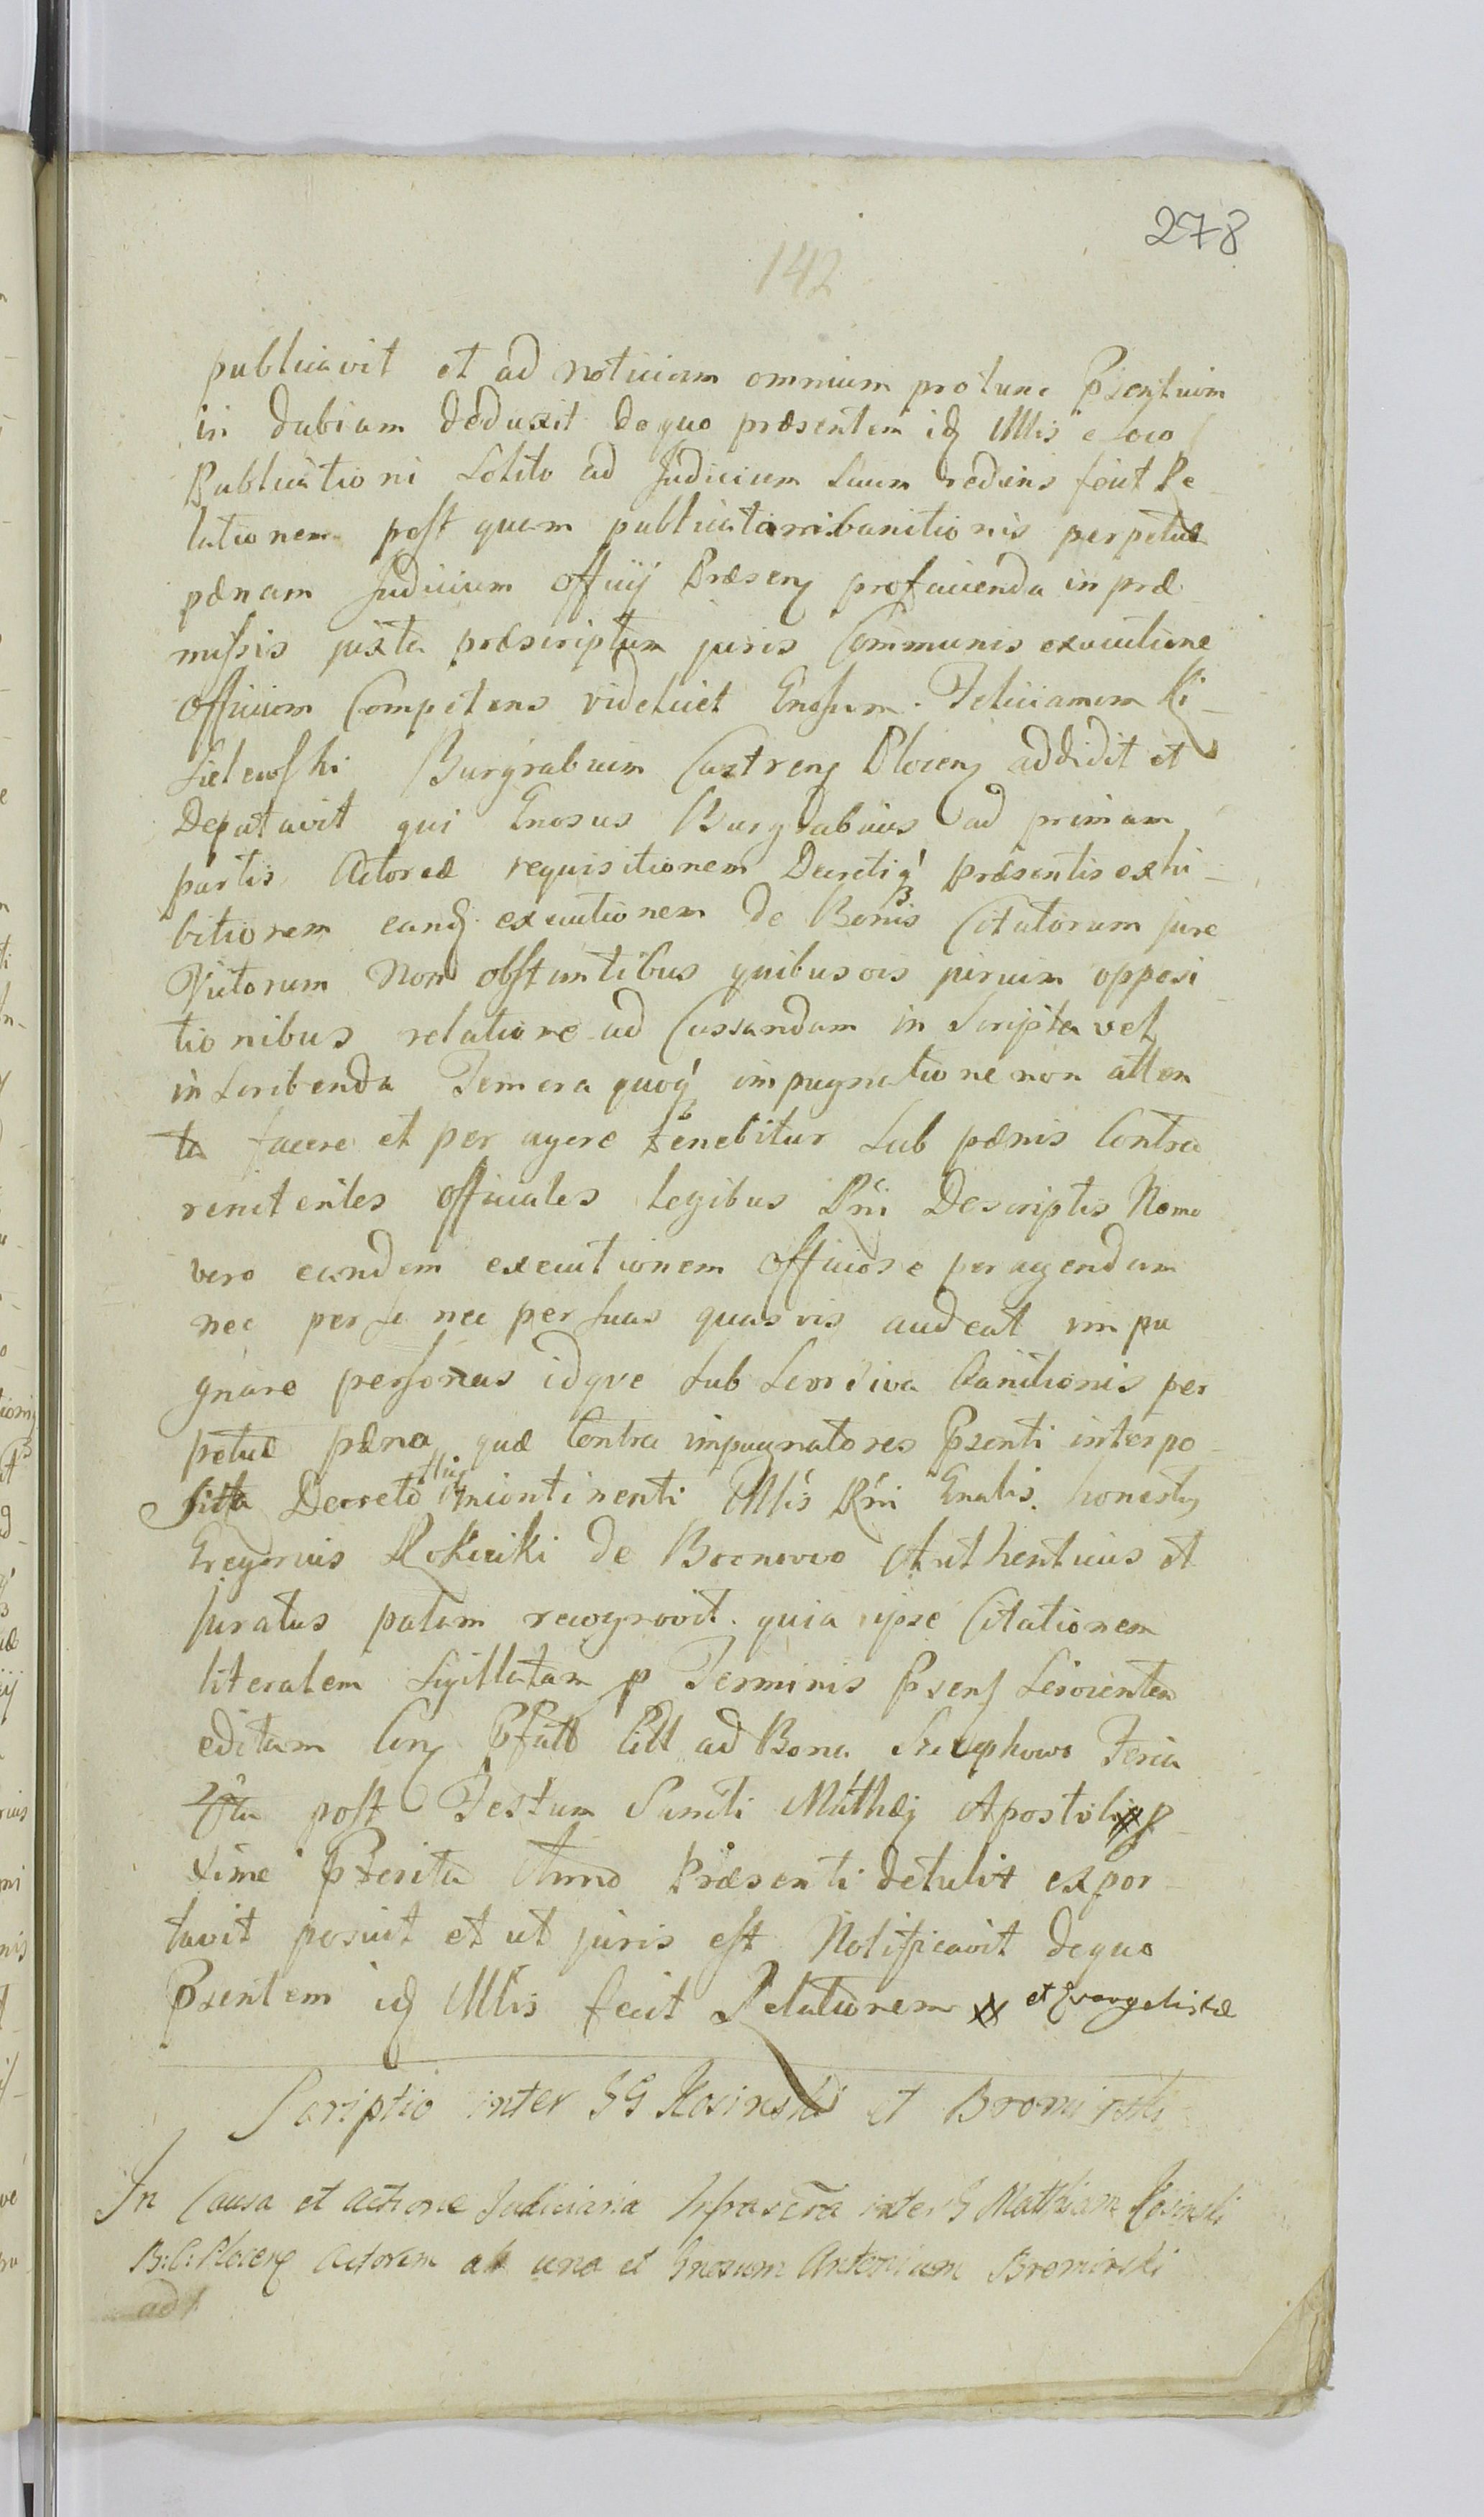 278
142
publicavit et ad noticiam omnium protunc Psentium
in dubiam deduxit de quo præsentem idq Mlis e Loco
Publicationi Solito ad Judicium Suum rediens fecit Re
lationem post quam publicatam banitionis perpetuæ
pænam Judicium officij Præseng pro facienda in præ
missis juxta præscriptum juris Communis executione
officium Competens videlicet Gnosum Felicianum Ki
sielewski Burgrabium Castreng Ploceng addidit et
Deputavit qui Gnosus Burgrabius ad primam
partis Actoreæ requisitionem Decretiq præsentis exhi
bitionem eandq executionem de Bonis Citatorum jure
Victorum Non obstantibus quibusvis pirium opposi
tionibus relatione ad Cassandam in Scripta vel
in Scribenda Temera quoq impugnatione non atten
ta facere et per agere tenebitur Sub pænis Contra
renitentes officiales Legibus Rni Descriptis Nemo
vero eandem executionem officiose peragendam
nec per se nec per suas quasvis audeat impu
gnare personas idque Sub Successiva banitionis per
petuæ pæna quæ Contra impugnatores Psenti interpo
sita Decreto incontinenti Mlis Rni Gnalis honestq
Gregorius Rokicki de Boonowo Authenticus et
juratus palam recognovit quia ipse Citationem
literalem Sigillatam p Terminis Pseng
editam Cong Pfatt Citt ad Bona Feria
post Festum Sancti Mathæj Apostoli xx p
xime Pterita Anno Præsenti detulit expor
tavit posuit et ut juris est Notificavit de quo
Psentem idq Mlis fecit Relationem xx et Evangelistæ
Scriptio inter GG Kosinski et Bromirski
In Causa et actione Judiciaria Infrascra inter G Matthiam Kosinski
B: C: Ploceng actorem ab una et Gnosum Antonium Bromirski
ad